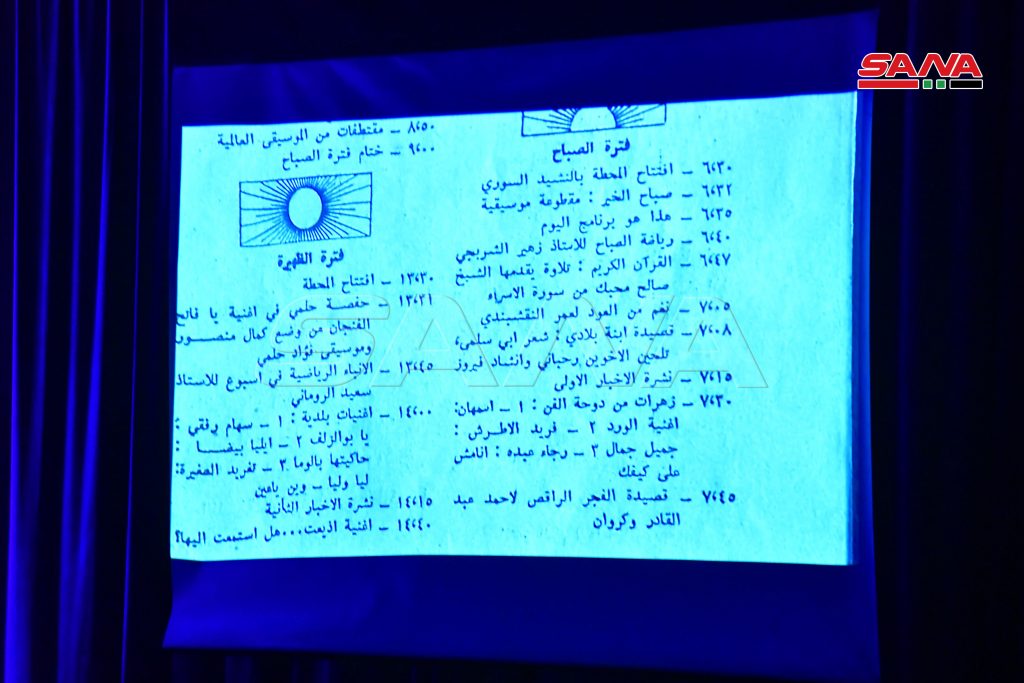 فترة الصباح
٦،٣٠ – افتتاح المحطة بالنشيد السوري
٦،٣٢ – صباح الخير : مقطوعة موسيقية
٦،٣٥ – هذا هو برنامج اليوم
٦،٤٠ – رياضة الصباح للاستاذ زهير الشربجي
٦،٤٧ – القرآن الكريم : تلاوة يقدمها الشيخ
صالح محبك من سورة الاسراء
٧،٠٥ – نغم من العود لعمر النقشبندي
٧،٠٨ – قصيدة ابنة بلادي : شعر ابي سلمى،
تلحين الاخوين رحباني وانشاد فيروز
٧،١٥ – نشرة الاخبار الاولى
٧،٣٠ – زهرات من دوحة الفن : ١ – اسمهان:
اغنية الورد ٢ – فريد الاطرش :
جميل جمال ٣ – رجاء عبده : انامش
على كيفك
٧،٤٥ – قصيدة الفجر الراقص لاحمد عبد
القادر وكروان
٨،٥٠ – مقتطفات من الموسيقى العالمية
٩،٠٠ – ختام فترة الصباح
فترة الظهيرة
١٣،٣٠ – افتتاح المحطة
١٣،٣١ – حفصة حلمي في اغنية يا فاتح
الفنجان من وضع كمال منصور
وموسيقى فؤاد حلمي
١٣،٤٥ – الانباء الرياضية في اسبوع للاستاذ
سعيد الروماني
١٤،٠٠ – اغنيات بلدية : ١ – سهام رفقي :
يا بوالزلف ٢ – ايليا بيضا :
حاكيتها بالوما ٣ – تغريد الصغيرة:
ليا وليا – وين ياعين
١٤،١٥ – نشرة الاخبار الثانية
١٤،٤٠ – اغنية اذيعت...هل استمعت اليها؟
SANA
SANA